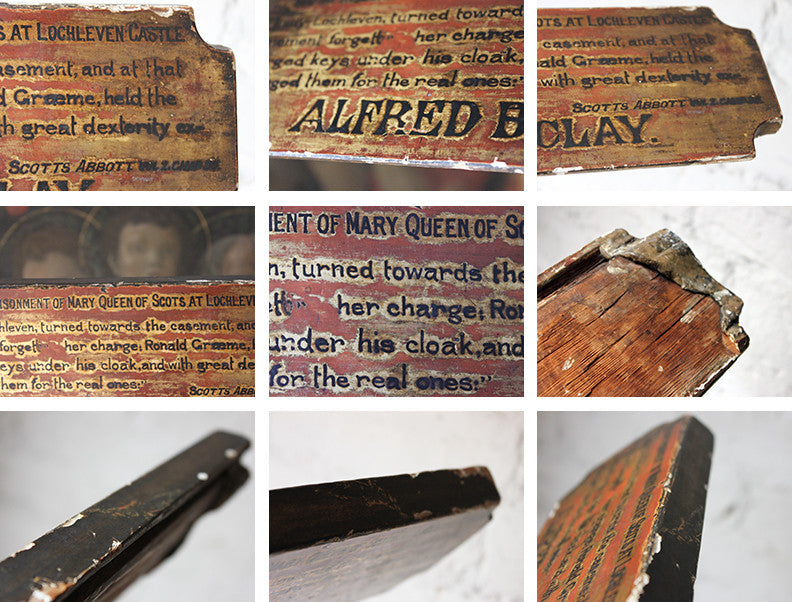 S AT LOCHLEVEN CASTLE
asement, and at that
d Græme, held the
th great dexterity ex
SCOTTS ABBOTT
LAY
LOCHLEVEN, turned toward
ement forgett" her charge
ged keys under his cloak,
ged them for the real ones:"
ALFRED B
OTS AT LOCHLEVEN CASTLE
casement, and at that
nald Græme, held the
with great dexterity exc
SCOTTS ABBOTT
CLAY.
ISONMENT OF MARY QUEEN OF SCOTS AT LOCHLEVEN
hleven, turned towards the casement, and
forgett" her charge; Ronald Græme, h
keys under his cloak, and with great de
them for the real ones:"
SCOTTS ABB
MENT OF MARY QUEEN OF SC
n, turned towards the
tt" her charge; Ron
under his cloak, and
for the real ones:"